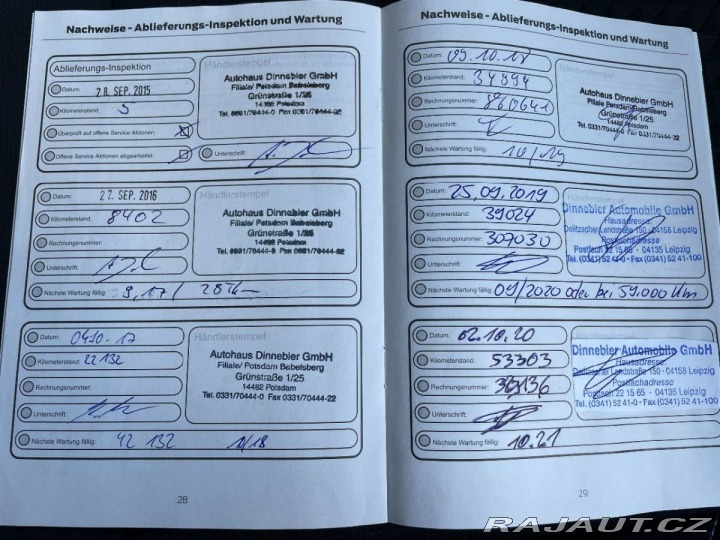 Nachweise - Ablieferungs-Inspektion und Wartung
Ablieferungs-Inspektion
Datum: 28. SEP. 2015
Kilometerstand: 5
Überprüft auf offene Service Aktionen:
Offene Service Aktionen abgearbeitet:
Händlerstempel
Autohaus Dinnebier GmbH
Filiale/ Potsdam Babelsberg
Grünstraße 1/25
14482 Potsdam
Tel. 0331/70444-0 Fax 0331/70444-22
Unterschrift:
Datum: 22. SEP. 2016
Kilometerstand: 8402
Rechnungsnummer:
Unterschrift:
Händlerstempel
Autohaus Dinnebier GmbH
Filiale/ Potsdam Babelsberg
Grünstraße 1/25
14482 Potsdam
Tel. 0331/70444-0 Fax 0331/70444-22
Nächste Wartung fällig: 9.17 /
Datum: 04.10.17
Kilometerstand: 22 132
Rechnungsnummer:
Unterschrift:
Händlerstempel
Autohaus Dinnebier GmbH
Filiale/ Potsdam Babelsberg
Grünstraße 1/25
14482 Potsdam
Tel. 0331/70444-0 Fax 0331/70444-22
Nächste Wartung fällig: 42 132 10/18
28
Nachweise - Ablieferungs-Inspektion und Wartung
Datum: 09.10.18
Kilometerstand: 34894
Rechnungsnummer: 860641
Unterschrift:
Händlerstempel
Autohaus Dinnebier GmbH
Filiale Potsdam Babelsberg
Grünstraße 1/25
14482 Potsdam
Tel. 0331/70444-0 Fax 0331/70444-22
Nächste Wartung fällig: 10/19
Datum: 25.09.2019
Kilometerstand: 39024
Rechnungsnummer: 307030
Unterschrift:
Händlerstempel
Dinnebier Automobile GmbH
Hausadresse:
Delitzscher Landstraße 150 · 04158 Leipzig
Postfachadresse
Postfach 22 15 65 · 04135 Leipzig
Tel. (0341) 52 41-0 · Fax (0341) 52 41-100
Nächste Wartung fällig: 09/2020 oder bei 59.000 Km
Datum: 02.10.20
Kilometerstand: 53303
Rechnungsnummer:
Unterschrift:
Händlerstempel
Dinnebier Automobile GmbH
Hausadresse:
Delitzscher Landstraße 150 · 04158 Leipzig
Postfachadresse
Postfach 22 15 65 · 04135 Leipzig
Tel. (0341) 52 41-0 · Fax (0341) 52 41-100
Nächste Wartung fällig: 10.21
29
RAJAUT.CZ